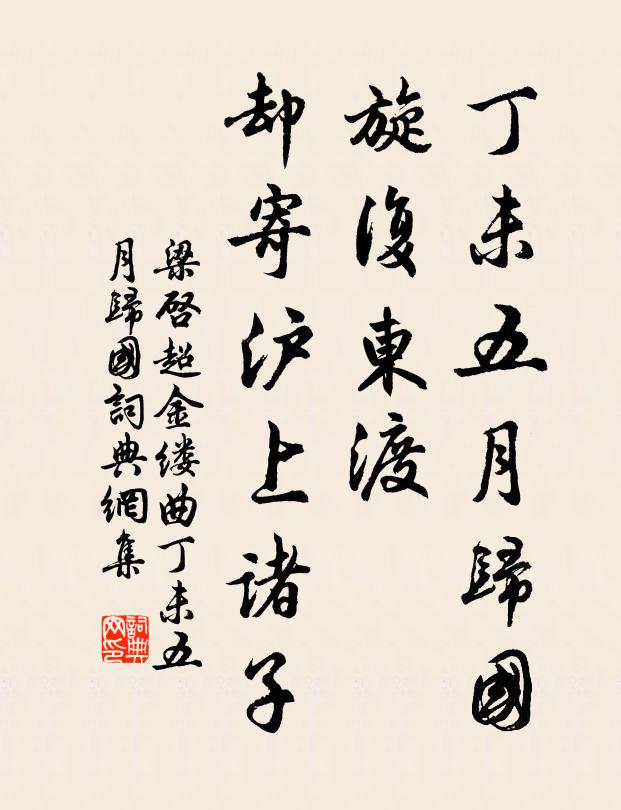 丁未五月歸國
旋復東渡
却寄沪上諸子
梁啓超金缕曲丁未五
月歸國詞典網集
詞典
网印